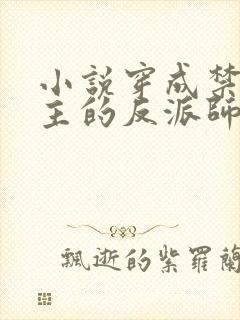 小說穿成禁
主的反派師
飄逝的紫羅蘭